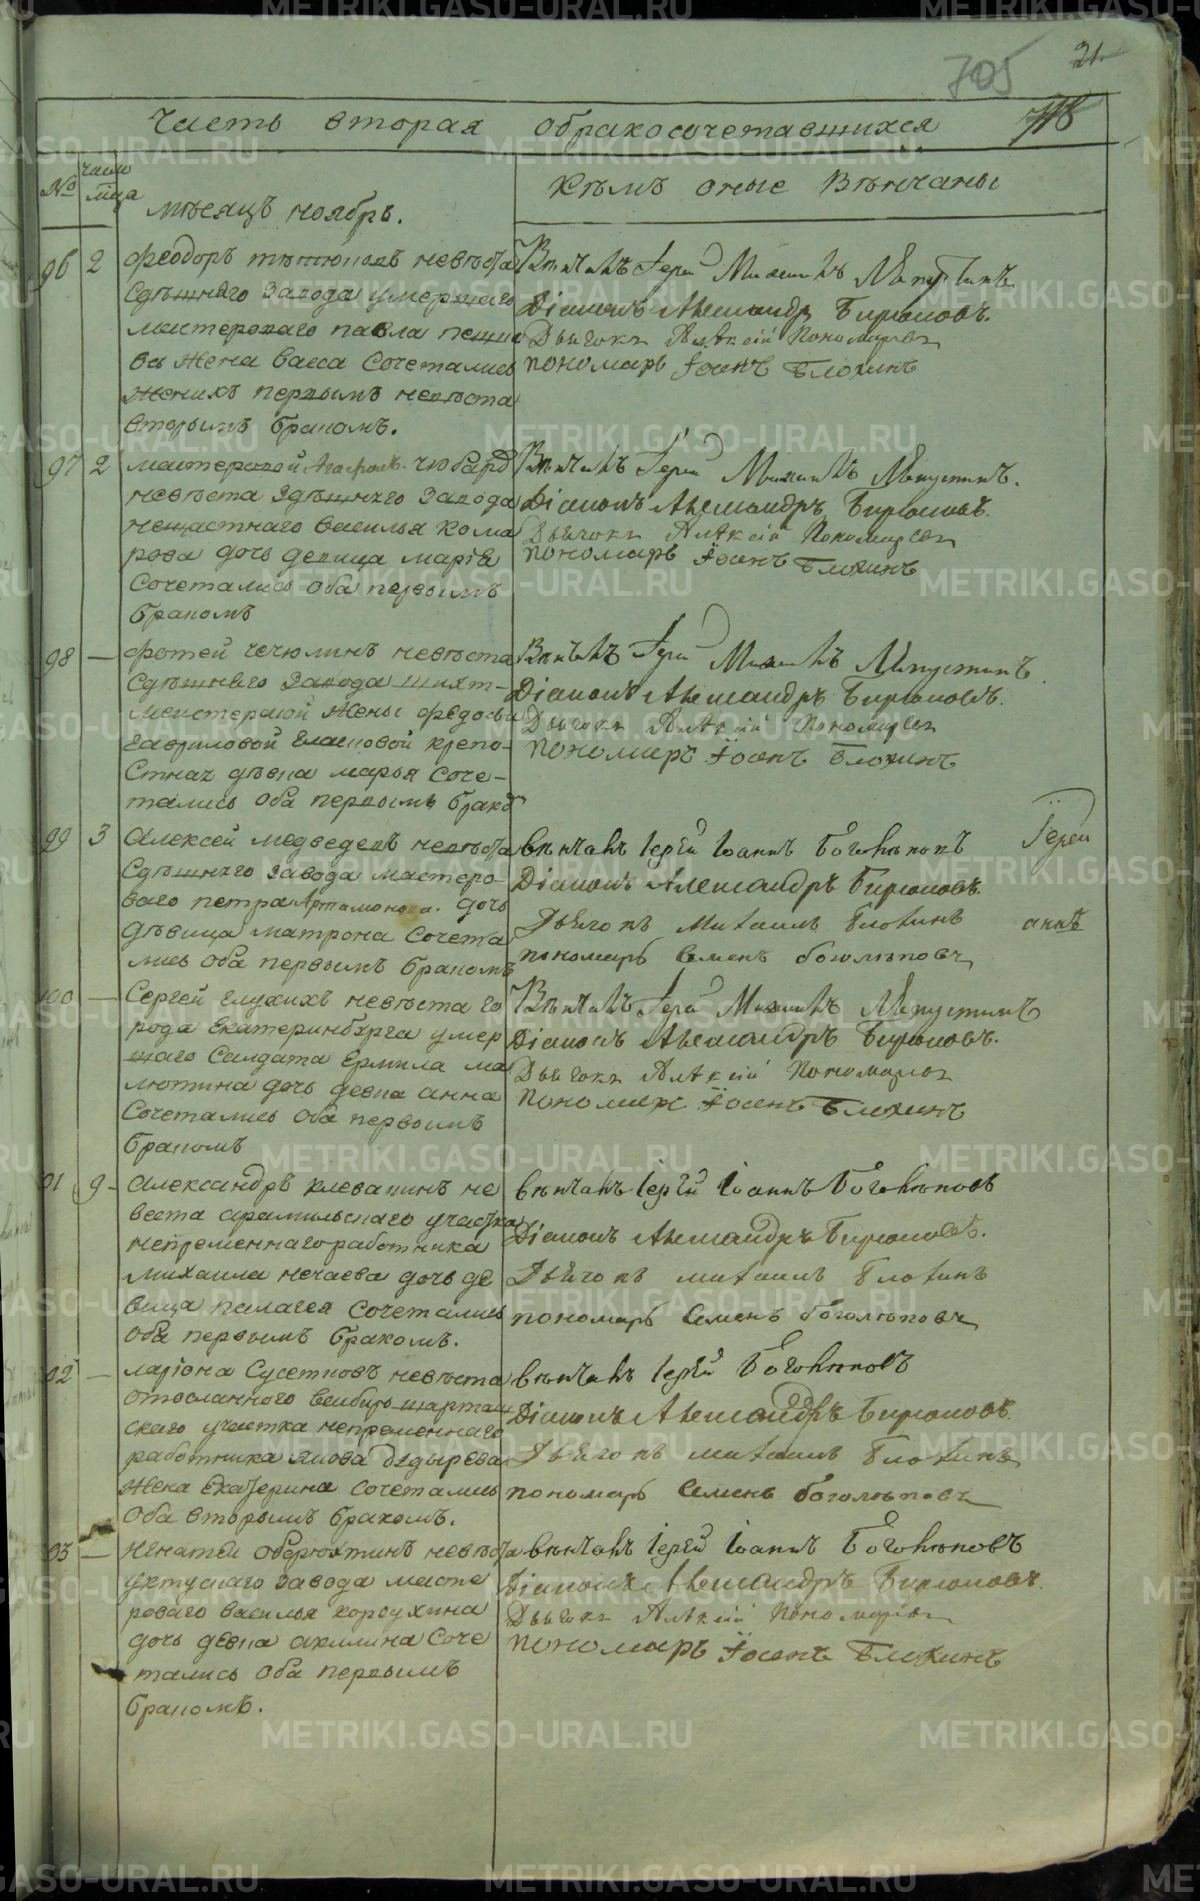 21.
705
718
Часть вторая обракосочетавшихся
№ число мца
Кѣмъ оные Вѣнчаны
мѣсяцъ ноябрь.
96 2 Феодоръ невѣста
Сдѣшнѣго завода умершаго
мастероваго павла
ва жена васса Сочетались
женихъ первымъ невѣста
вторымъ бракомъ.
Вѣнчалъ Іерей Михаилъ
Діаконъ Александръ Бирюковъ.
Дьячокъ Алѣксѣй Пономаревъ
пономарь Іосифъ Блохинъ
97 2 мастеровой чюбаръ
невѣста здѣшнѣго завода
нещастнаго василья кома
рова дочь девица маріѣ
Сочетались оба первымъ
бракомъ
Вѣнчалъ Іерей Михаилъ
Діаконъ Александръ Бирюковъ.
Дьячокъ Алѣксѣй Пономаревъ
пономарь Іосифъ Блохинъ
98 — фотей чечюлинъ невѣста
Сдѣшнѣго завода шихт-
мейстерской жены федосьи
гавриловой крепо-
стная дѣвка марья соче-
тались оба первымъ бракъ
Вѣнчалъ Іерей Михаилъ
Діаконъ Александръ Бирюковъ.
Дьячокъ Алѣксѣй Пономаревъ
пономарь Іосифъ Блохинъ
99 3 Алексей медведевъ невѣста
Сдѣшнѣго завода мастеро-
ваго петра Артамонова. дочь
дѣвица матрона сочета
лись оба первымъ бракомъ
вѣнчалъ Іерей Іоаннъ Боголѣповъ
Іерей
Діаконъ Александръ Бирюковъ.
Дьячокъ михаилъ блохинъ
пономарь Семенъ боголѣповъ
100 — Сергей глухихъ невѣста го
рода Екатеринбѣрга умер
шаго Салдата Ермила ма
лютина дочь девка анна
Сочетались оба первымъ
бракомъ
Вѣнчалъ Іерей Михаилъ
Діаконъ Александръ Бирюковъ.
Дьячокъ Алѣксѣй Пономаревъ
пономарь Іосифъ Блохинъ
01 9 Александръ клевакинъ не
веста арамильскаго участка
непременнаго работника
михаила нечаева дочь де
вица палагея сочетались
оба первымъ бракомъ.
вѣнчалъ Іерей Іоаннъ Боголѣповъ
Діаконъ Александръ Бирюковъ.
Дьячокъ михаилъ блохинъ
пономарь Семенъ боголѣповъ
02 — ларіона невѣста
отосланного всибирь шарташ
скаго участка непременнаго
работника якова
жена Екатерина сочетались
оба вторымъ бракомъ.
вѣнчалъ Іерей Боголѣповъ
Діаконъ Александръ Бирюковъ.
Дьячокъ михаилъ блохинъ
пономарь Семенъ боголѣповъ
03 — Игнатей обарюхтинъ невѣста
уктускаго завода масте
роваго василья корзухина
дочь девка акилина соче
тались оба первымъ
бракомъ.
вѣнчалъ Іерей Іоаннъ Боголѣповъ
Діаконъ Александръ Бирюковъ.
Дьячокъ Алѣксѣй Пономаревъ
пономарь Іосифъ Блохинъ
METRIKI.GASO-URAL.RU